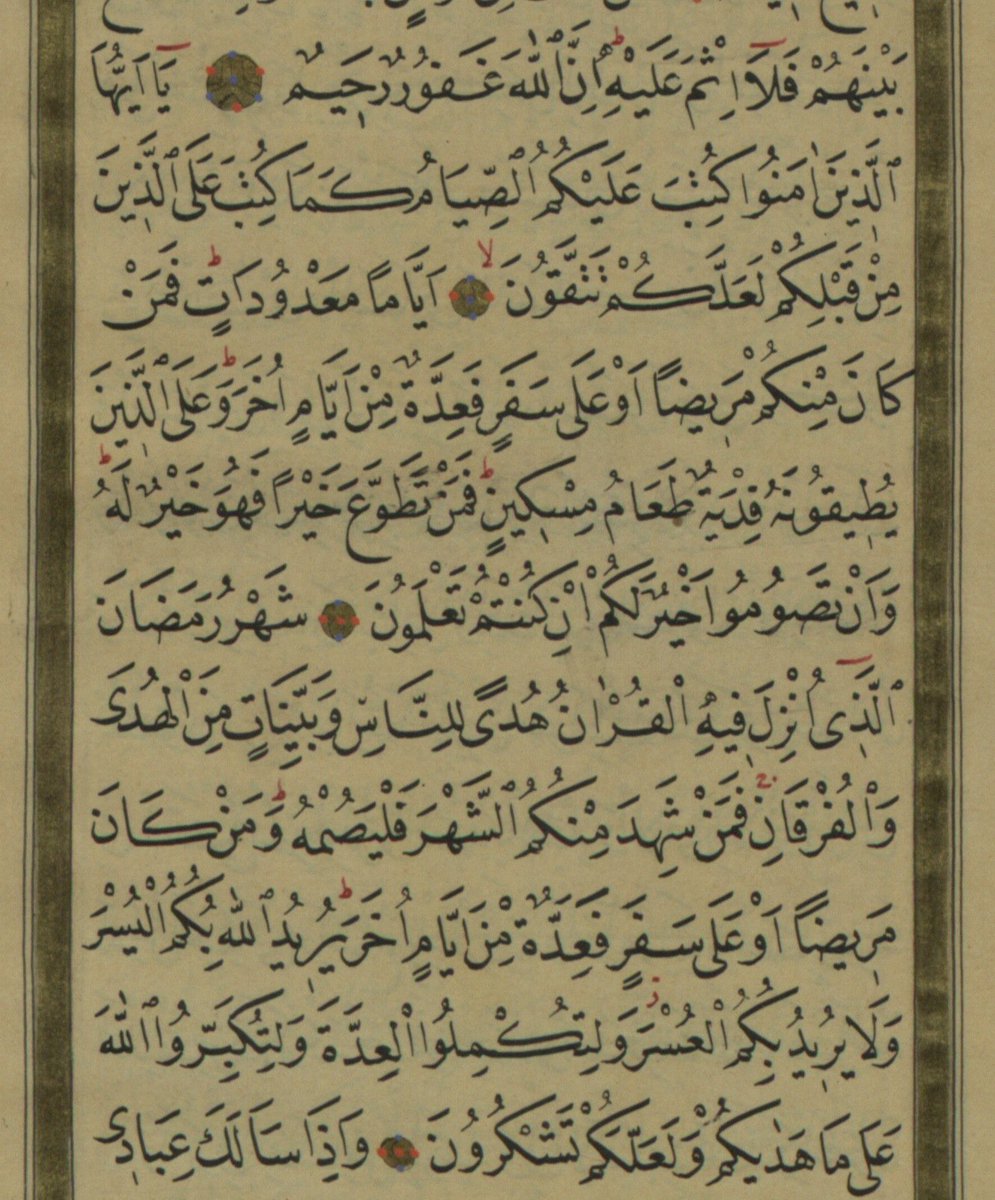 بَيْنَهُمْ فَلَٓا اِثْمَ عَلَيْهِۜ اِنَّ ٱللّٰهَ غَفُورٌ رَحِيمٌ يَٓا اَيُّهَا
ٱلَّذِينَ اٰمَنُوا كُتِبَ عَلَيْكُمُ ٱلصِّيَامُ كَمَا كُتِبَ عَلَى ٱلَّذِينَ
مِنْ قَبْلِكُمْ لَعَلَّكُمْ تَتَّقُونَۙ اَيَّامًا مَعْدُودَاتٍۜ فَمَنْ
كَانَ مِنْكُمْ مَرِيضًا اَوْ عَلَى سَفَرٍ فَعِدَّةٌ مِنْ اَيَّامٍ اُخَرَۜ وَعَلَى ٱلَّذِينَ
يُطِيقُونَهُ فِدْيَةٌ طَعَامُ مِسْكِينٍۜ فَمَنْ تَطَوَّعَ خَيْرًا فَهُوَ خَيْرٌ لَهُۜ
وَاَنْ تَصُومُوا خَيْرٌ لَكُمْ اِنْ كُنْتُمْ تَعْلَمُونَ شَهْرُ رَمَضَانَ
ٱلَّذِىٓ اُنْزِلَ فِيهِ ٱلْقُرْاٰنُ هُدًى لِلنَّاسِ وَبَيِّنَاتٍ مِنَ ٱلْهُدَى
وَٱلْفُرْقَانِۚ فَمَنْ شَهِدَ مِنْكُمُ ٱلشَّهْرَ فَلْيَصُمْهُۜ وَمَنْ كَانَ
مَرِيضًا اَوْ عَلَى سَفَرٍ فَعِدَّةٌ مِنْ اَيَّامٍ اُخَرَۜ يُرِيدُ ٱللّٰهُ بِكُمُ ٱلْيُسْرَ
وَلَا يُرِيدُ بِكُمُ ٱلْعُسْرَ وَلِتُكْمِلُوا ٱلْعِدَّةَ وَلِتُكَبِّرُوا ٱللّٰهَ
عَلَى مَا هَدٰيكُمْ وَلَعَلَّكُمْ تَشْكُرُونَ وَاِذَا سَاَلَكَ عِبَادِى